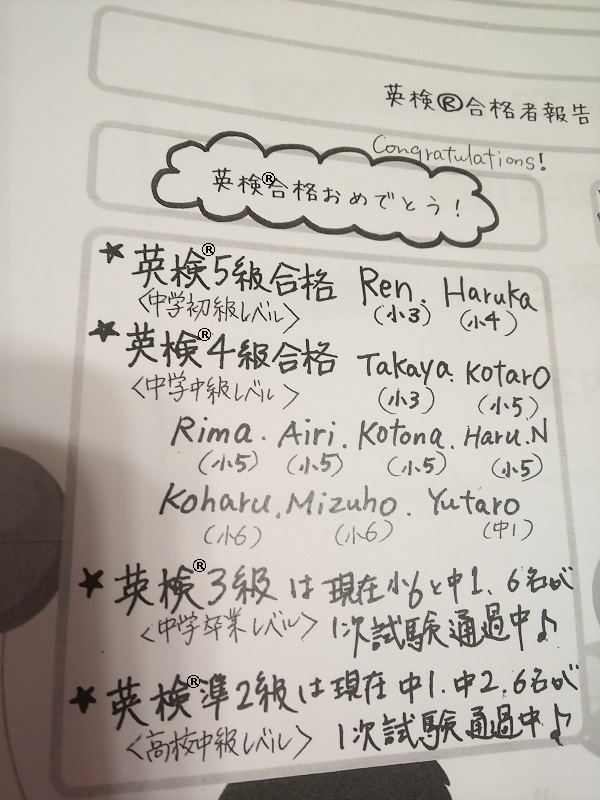 英検®合格者報告
Congratulations!
英検®合格おめでとう!
★英検®5級合格 Ren. Haruka
〈中学初級レベル〉 (小3) (小4)
★英検®4級合格 Takaya. Kotaro
〈中学中級レベル〉 (小3) (小5)
Rima. Airi. Kotona. Haru.N
(小5) (小5) (小5) (小5)
Koharu. Mizuho. Yutaro
(小6) (小6) (中1)
★英検®3級は現在小6と中1、6名が
〈中学卒業レベル〉 1次試験通過中♪
★英検®準2級は現在中1.中2.6名が
〈高校中級レベル〉 1次試験通過中♪